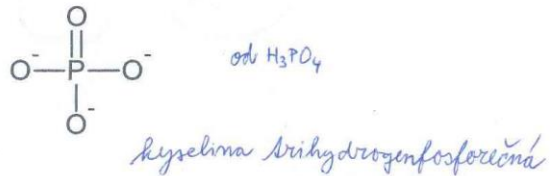 O
O⁻ P O⁻
O⁻
od H₃PO₄
kyselina trihydrogenfosforečná